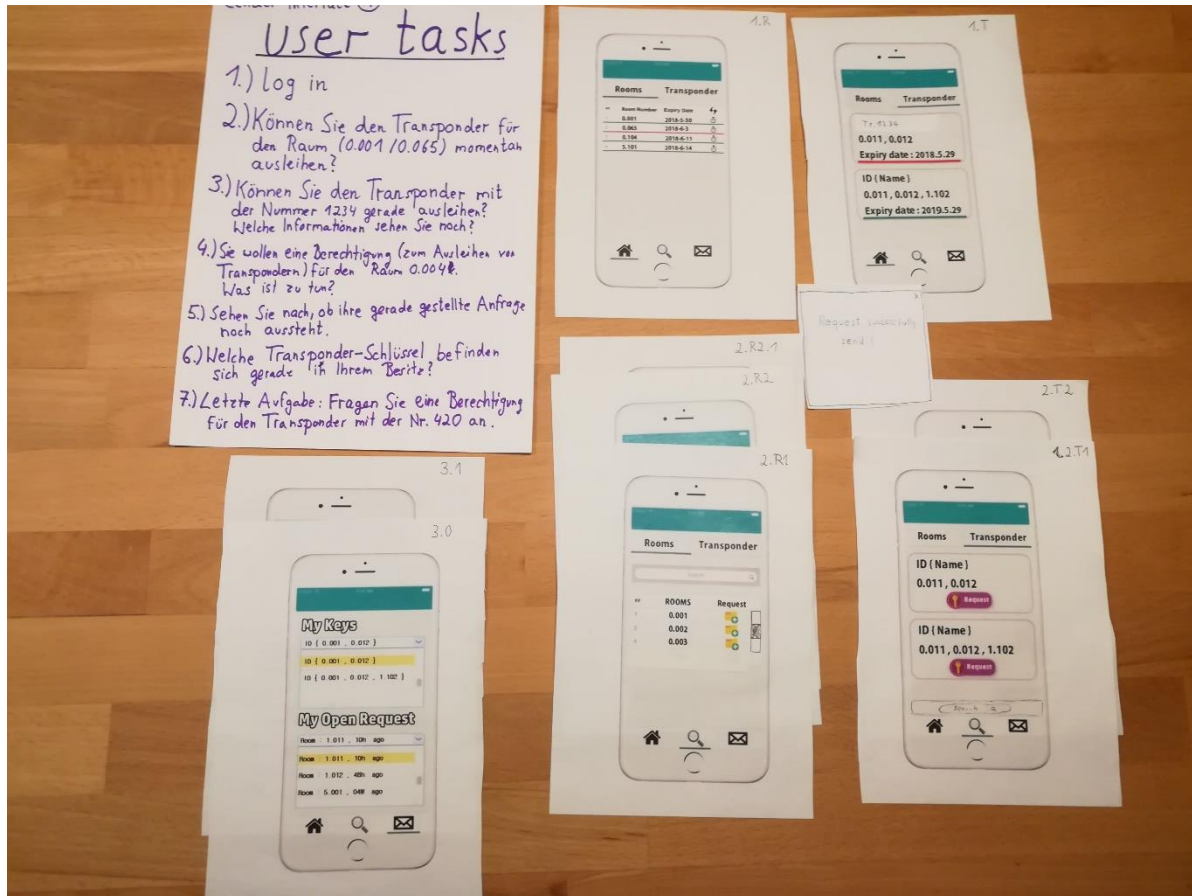 user tasks
1.) log in
2.) Können Sie den Transponder für
den Raum (0.001 / 0.065) momentan
ausleihen?
3.) Können Sie den Transponder mit
der Nummer 1234 gerade ausleihen?
Welche Informationen sehen Sie noch?
4.) Sie wollen eine Berechtigung (zum Ausleihen von
Transpondern) für den Raum 0.004.
Was ist zu tun?
5.) Sehen Sie nach, ob ihre gerade gestellte Anfrage
noch aussteht.
6.) Welche Transponder-Schlüssel befinden
sich gerade in Ihrem Besitz?
7.) Letzte Aufgabe: Fragen Sie eine Berechtigung
für den Transponder mit der Nr. 420 an.
1.R
Rooms Transponder
Room Number Expiry Date
0.001 2018-5-30
0.065 2018-6-3
0.104 2018-6-11
5.101 2018-6-14
1.T
Rooms Transponder
Tr. 1234
0.011, 0.012
Expiry date : 2018.5.29
ID ( Name )
0.011, 0.012, 1.102
Expiry date : 2019.5.29
x
Request successfully
send !
2.R2.1
2.R2
2.R1
Rooms Transponder
ROOMS Request
0.001
0.002
0.003
2.T2
2.T1
Rooms Transponder
ID ( Name )
0.011, 0.012
Request
ID ( Name )
0.011, 0.012, 1.102
Request
Search
3.1
3.0
My Keys
ID ( 0.001 , 0.012 )
ID ( 0.001 , 0.012 )
ID ( 0.001 , 0.012 , 1.102 )
My Open Request
Room : 1.011 , 10h ago
Room : 1.011 , 10h ago
Room : 1.012 , 48h ago
Room : 5.001 , ago